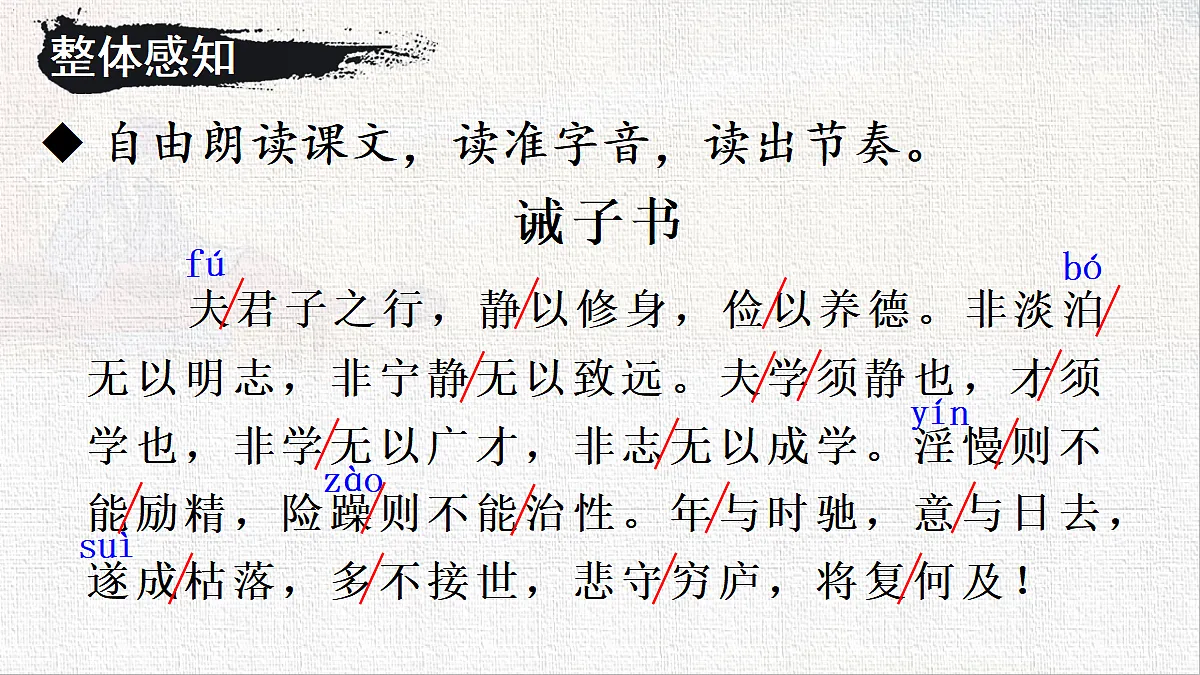 整体感知
◆ 自由朗读课文，读准字音，读出节奏。
诫子书
fú bó
夫/君子之行，静/以修身，俭/以养德。非淡泊/
无以明志，非宁静/无以致远。夫/学/须静也，才/须
yín
学也，非学/无以广才，非志/无以成学。淫慢/则不
zào
能/励精，险躁/则不能/治性。年/与时驰，意/与日去，
suì
遂成/枯落，多/不接世，悲守/穷庐，将复/何及！